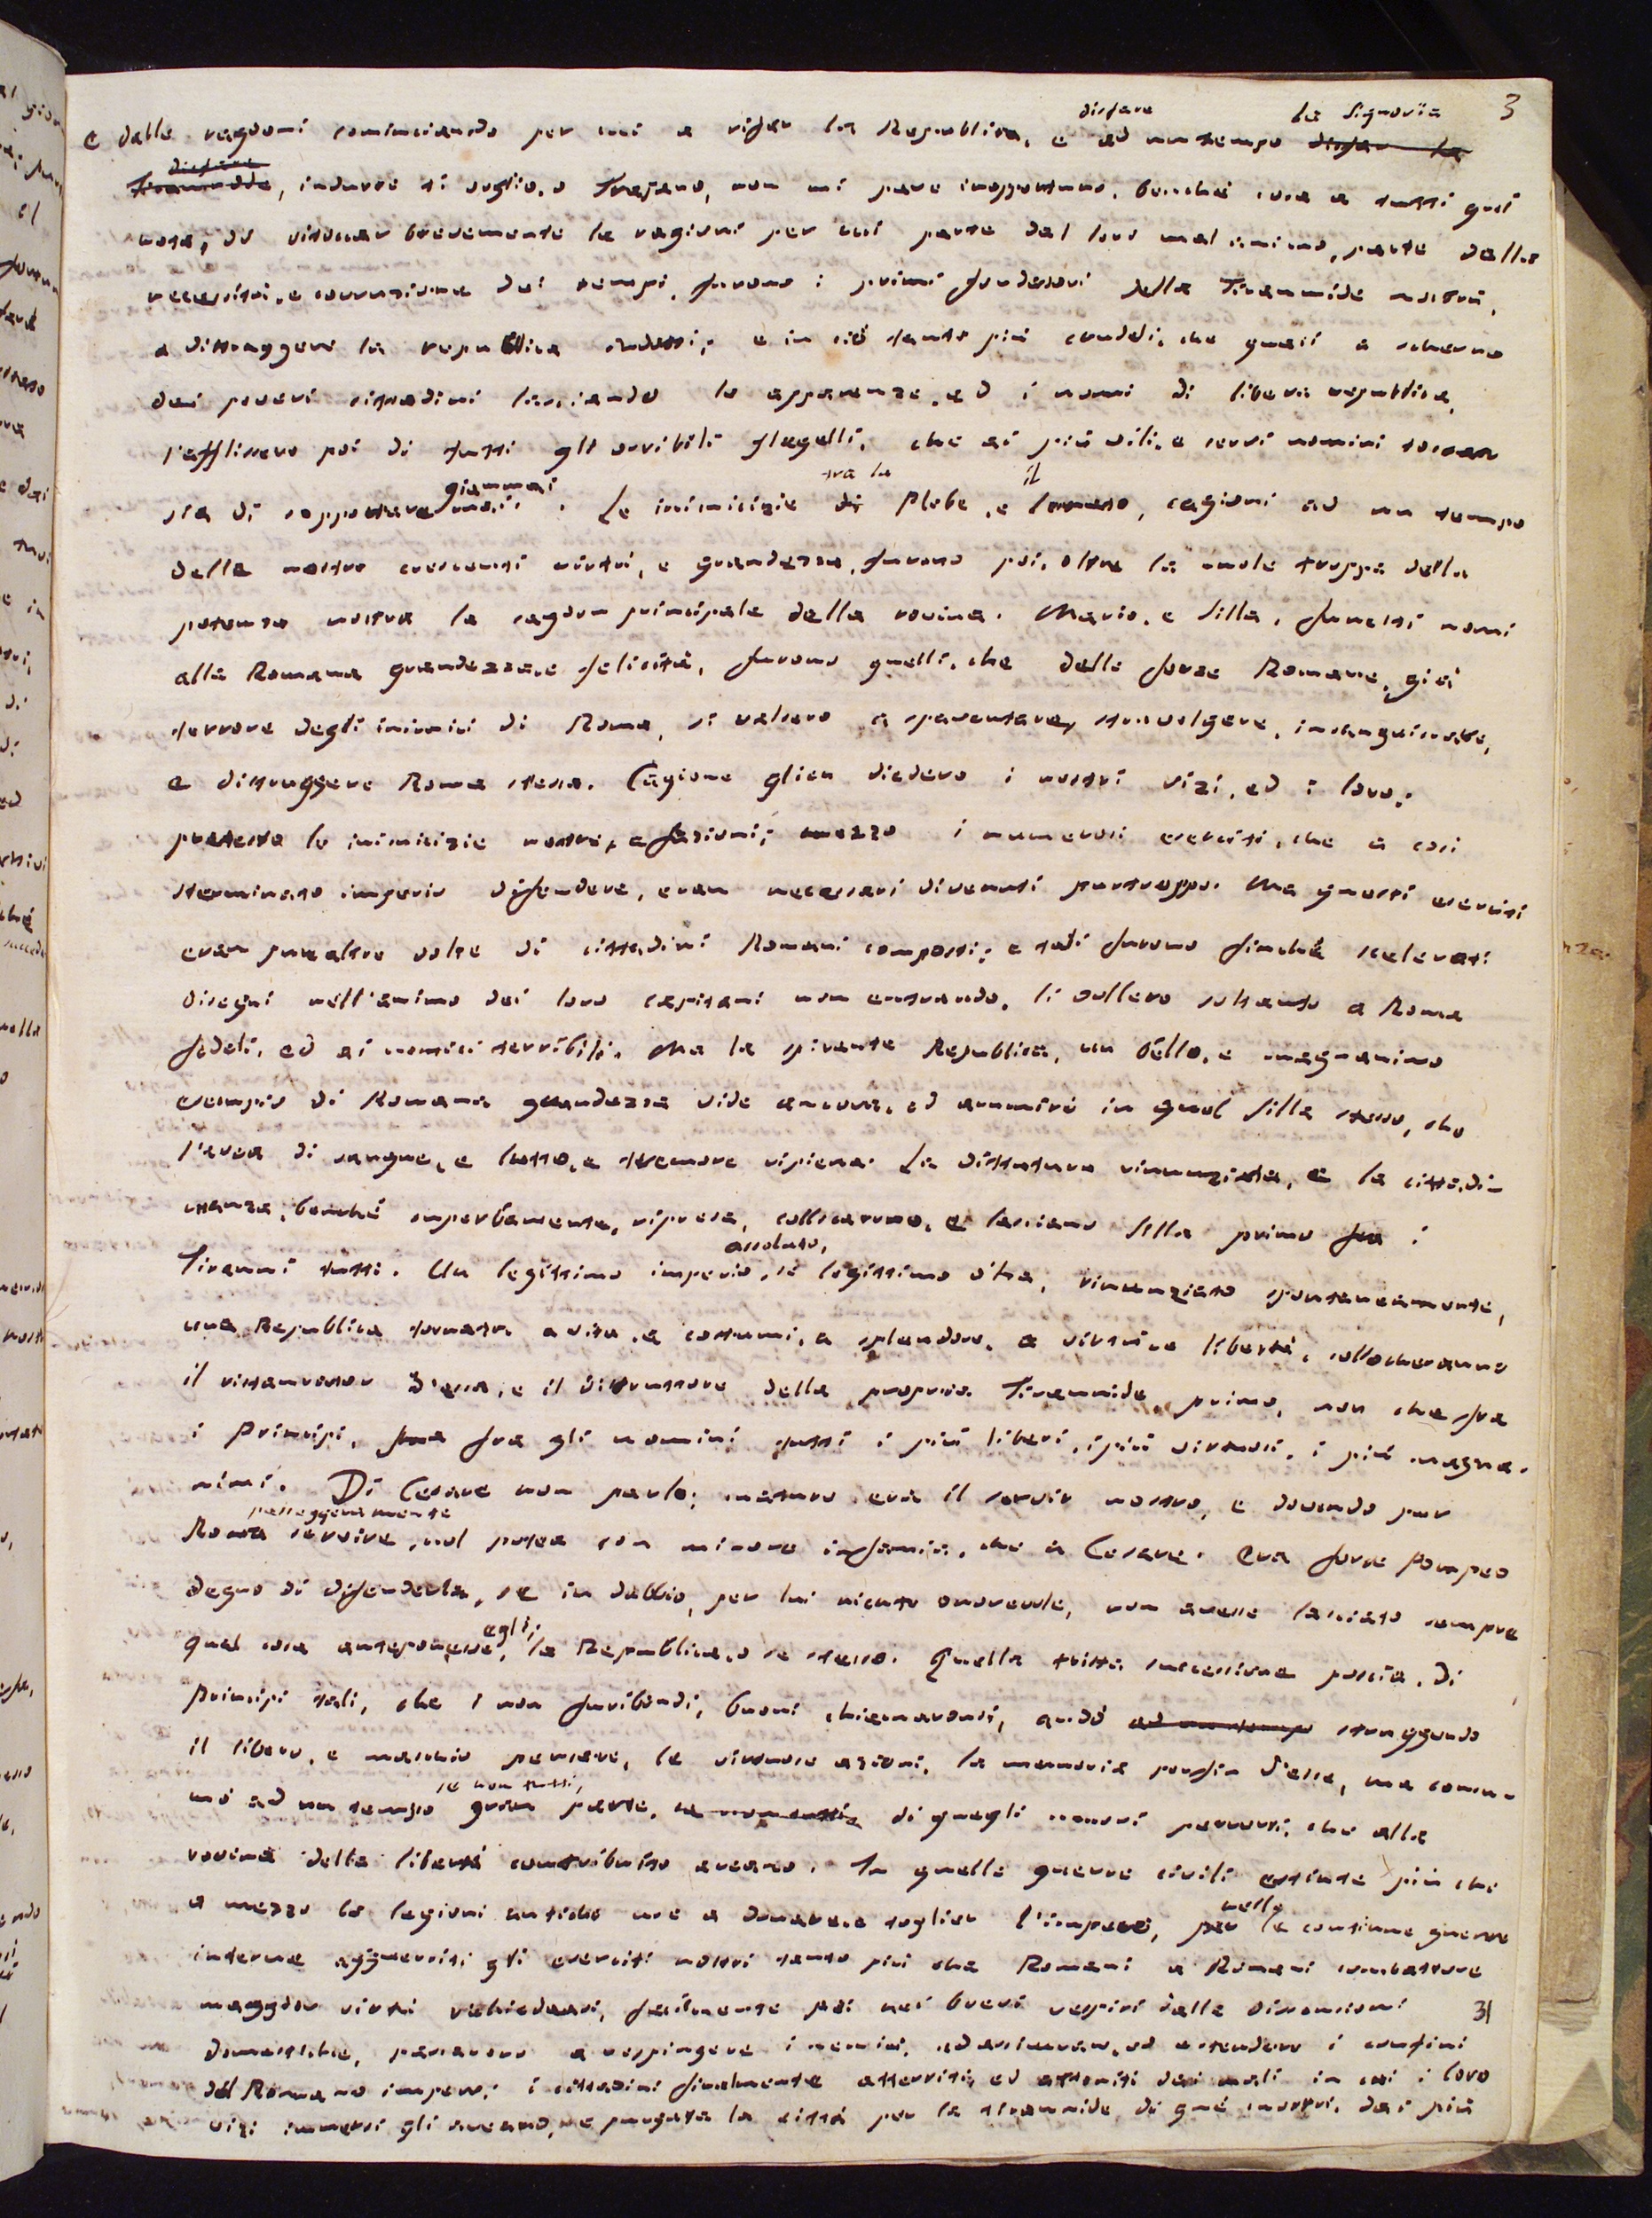 3
disfare la Signorìa
E dalle ragioni cominciando per cui a rifar la Republica, e ad un tempo disfar la
disfare
Tirannide, indurre ti voglio, o Trajano, non mi pare inopportuno, benchè cosa a tutti quasi
nota, di ritoccar brevemente le ragioni per cui parte dal loro mal animo, parte dalla
necessità, e corruzione dei tempi, furono i primi fondatori della Tirannide nostra,
a distruggere la republica indotti; e in ciò tanto più crudeli, che quasi a scherno
dei poveri cittadini lasciando le apparenze, ed i nomi di libera republica,
l'afflissero poi di tutti gli orribili flagelli, che ai più vili, e servi uomini toccar
giammai tra la il
sia di sopportare mai. Le inimicizie di Plebe, e Senato, cagioni ad un tempo
della nostra crescente virtù, e grandezza, furono poi, oltre la mole troppa della
potenza nostra la cagion principale della rovina. Mario, e Silla, funesti nomi
alla Romana grandezza, e felicità, furono quelli, che delle forze Romane, già
terrore degli inimici di Roma, si valsero a spaventare, stravolgere, insanguinare,
e distruggere Roma stessa. Cagione glien diedero i nostri vizi, ed i loro;
pretesto le inimicizie nostre, e fazioni; mezzo i numerosi eserciti, che a così
sterminato imperio difendere, eran necessari divenuti purtroppo. Ma questi eserciti
eran pure altre volte di cittadini Romani composti; e tali furono finchè scelerati
disegni nell'animo dei loro capitani non entrando, li vollero soltanto a Roma
fedeli, ed ai nemici terribili. Ma la spirante Republica, un bello, e magnanimo
esempio di Romana grandezza vide ancora, ed ammirò in quel Silla stesso, che
l'avea di sangue, e lutto, e terrore ripiena. La dittatura rinunziata, e la cittadi-
nanza, benchè superbamente, ripresa, collocarono, e lasciano Silla primo fra i
assoluto,
Tiranni tutti. Un legittimo imperio, se legittimo v'ha, rinunziato spontaneamente,
una Republica tornata a vita, a costumi, a splendore, a virtù, e libertà, collocheranno
il ristaurator d'essa, e il distruttore della propria Tirannide primo, non che fra
i Principi, fra gli uomini tutti i più liberi, i più virtuosi, i più magna-
nimi. Di Cesare non parlo; maturo era il servir nostro, e dovendo pur
passeggeramente
Roma servire, nol potea con minore infamia, che a Cesare. Era forse Pompeo
degno di difenderla, se in dubbio, per lui niente onorevole, non avesse lasciato sempre
egli;
qual cosa anteponesse, la Republica, o se stesso. Quella trista successione poscia, di
Principi tali, che i non furibondi, buoni chiamaronsi, andò ad un tempo struggendo
il libero, e maschio pensare, le virtuose azioni, la memoria perfin d'esse, ma consu-
se non tutti,
mò ad un tempo gran parte, se non tutti, di quegli uomini perversi, che alla
rovina della libertà contribuito aveano. In quelle guerre civili estinte più che
nelle
a mezzo le legioni antiche use a donare, e toglier l'impero, per le continue guerre
interne agguerriti gli eserciti nostri tanto più che Romani a Romani combattere
maggior virtù richiedeasi, facilmente poi nei brevi respiri dalle dissensioni
31
domestiche, passarono a respingere i nemici, ad assicurar, ed estendere i confini
del Romano impero; i cittadini finalmente atterriti, ed attoniti dai mali in cui i loro
vizi immersi gli aveano, e purgata la città per la tirannide di que' mostri, dai più